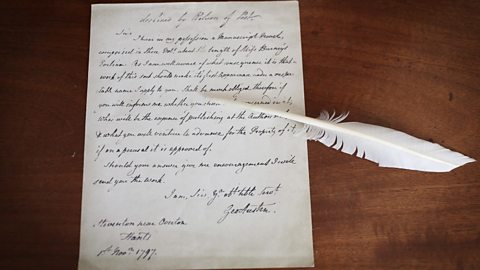 declined by Return of Post
Sirs I have in my possession a Manuscript Novel,
comprised in three Vols. about the length of Miss Burney's
Evelina. As I am well aware of what consequence it is that a
work of this sort should make its first appearance under a respec
table name I apply to you. Shall be much obliged therefore if
you will inform me whether you chuse
What will be the expense of publishing at the Author's
& what you will venture to advance for the Property of it,
if on a perusal it is approved of.
Should your answer give me encouragement I will
send you the Work.
I am, Sirs, Yr. obt. hble Servt.
Geo Austen.
Steventon near Overton
Hants
1st Novr. 1797.